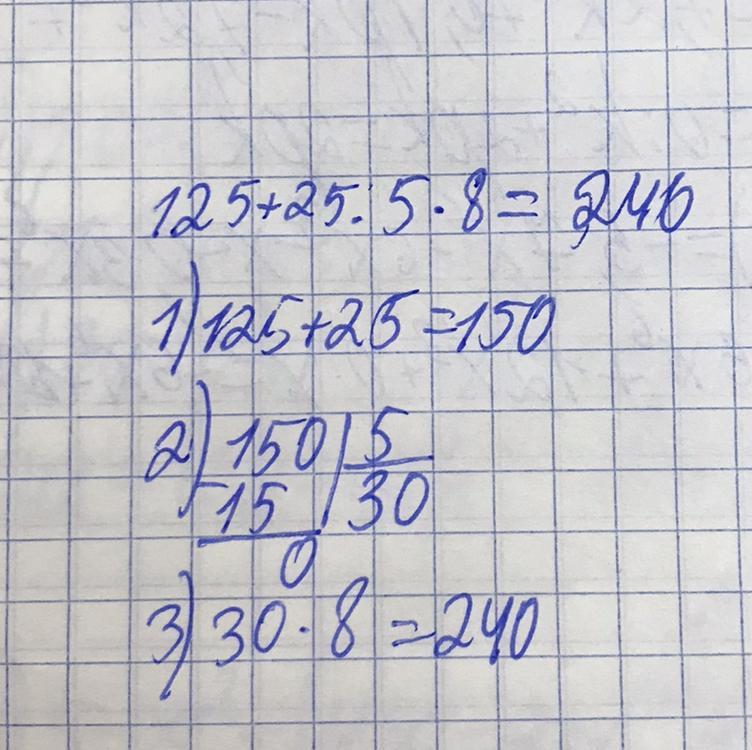 125+25:5·8=240
1)125+25=150
2)150|5
-15|30
0
3)30·8=240